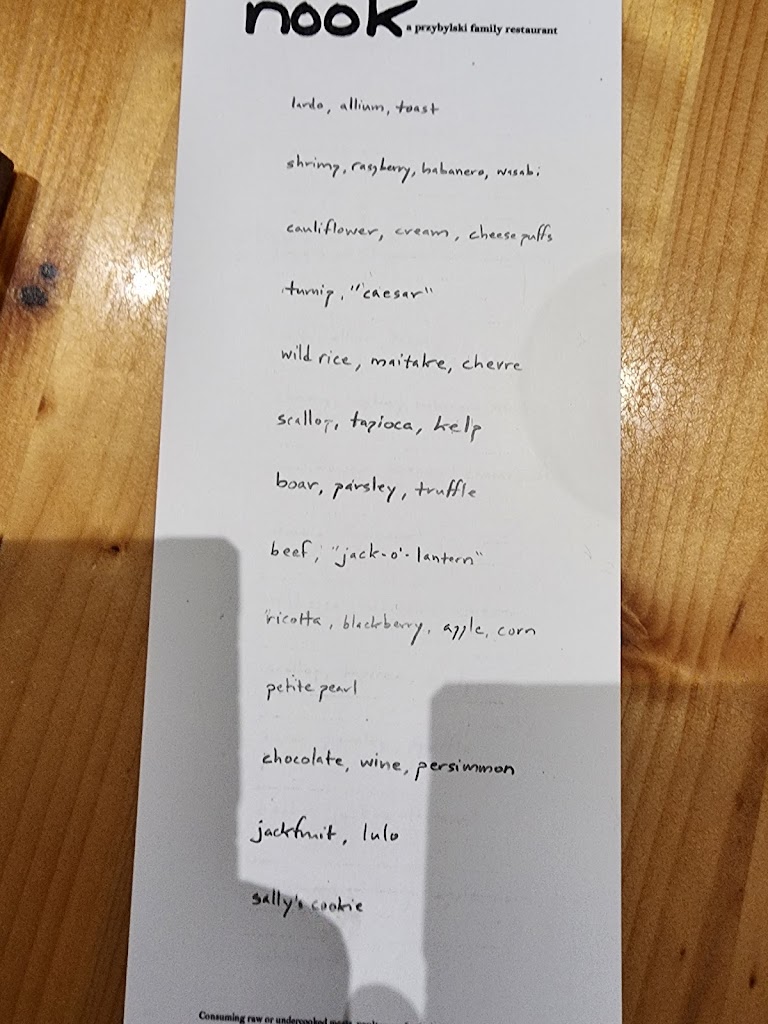 nook a przybylski family restaurant
lardo, allium, toast
shrimp, raspberry, habanero, wasabi
cauliflower, cream, cheese puffs
turnip, "caesar"
wild rice, maitake, chevre
scallop, tapioca, kelp
boar, parsley, truffle
beef, "jack-o'-lantern"
ricotta, blackberry, apple, corn
petite pearl
chocolate, wine, persimmon
jackfruit, lulo
sally's cookie
Consuming raw or undercooked